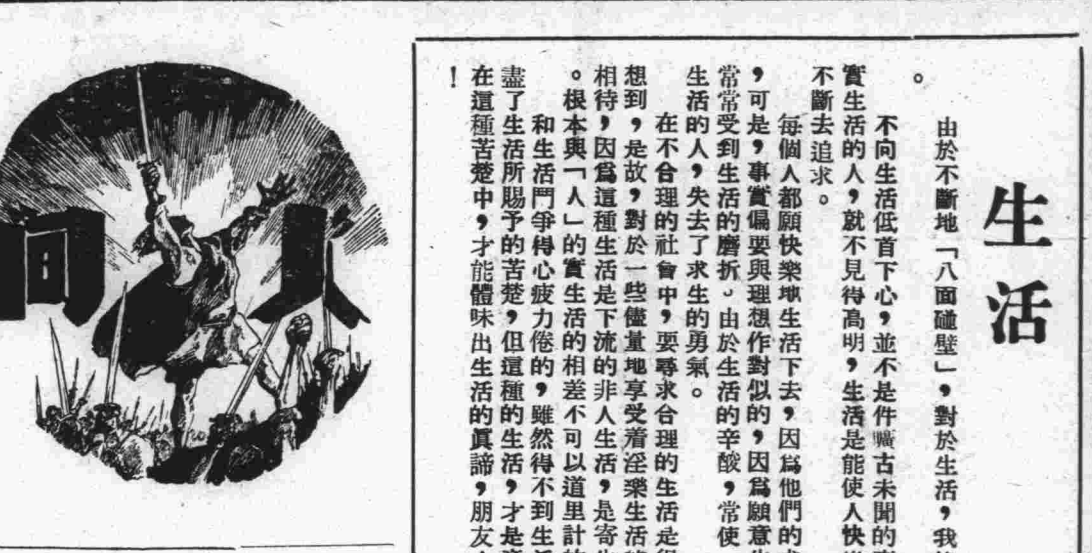 生活
由於不斷地「八面碰壁」，對於生活，我
。
不向生活低首下心，並不是件曠古未聞的
實生活的人，就不見得高明，生活是能使人快
不斷去追求。
每個人都願快樂地生活下去，因爲他們的
，可是，事實偏要與理想作對似的，因爲願意
常常受到生活的磨折。由於生活的辛酸，常使
生活的人，失去了求生的勇氣。
在不合理的社會中，要尋求合理的生活是
想到，是故，對於一些儘量地享受着淫樂生活
相待，因爲這種生活是下流的非人生活，是寄
。根本與「人」的實生活的相差不可以道里計
和生活鬥爭得心疲力倦的，雖然得不到生
盡了生活所賜予的苦楚，但這種的生活，才是
在這種苦楚中，才能體味出生活的眞諦，朋友
！
人間